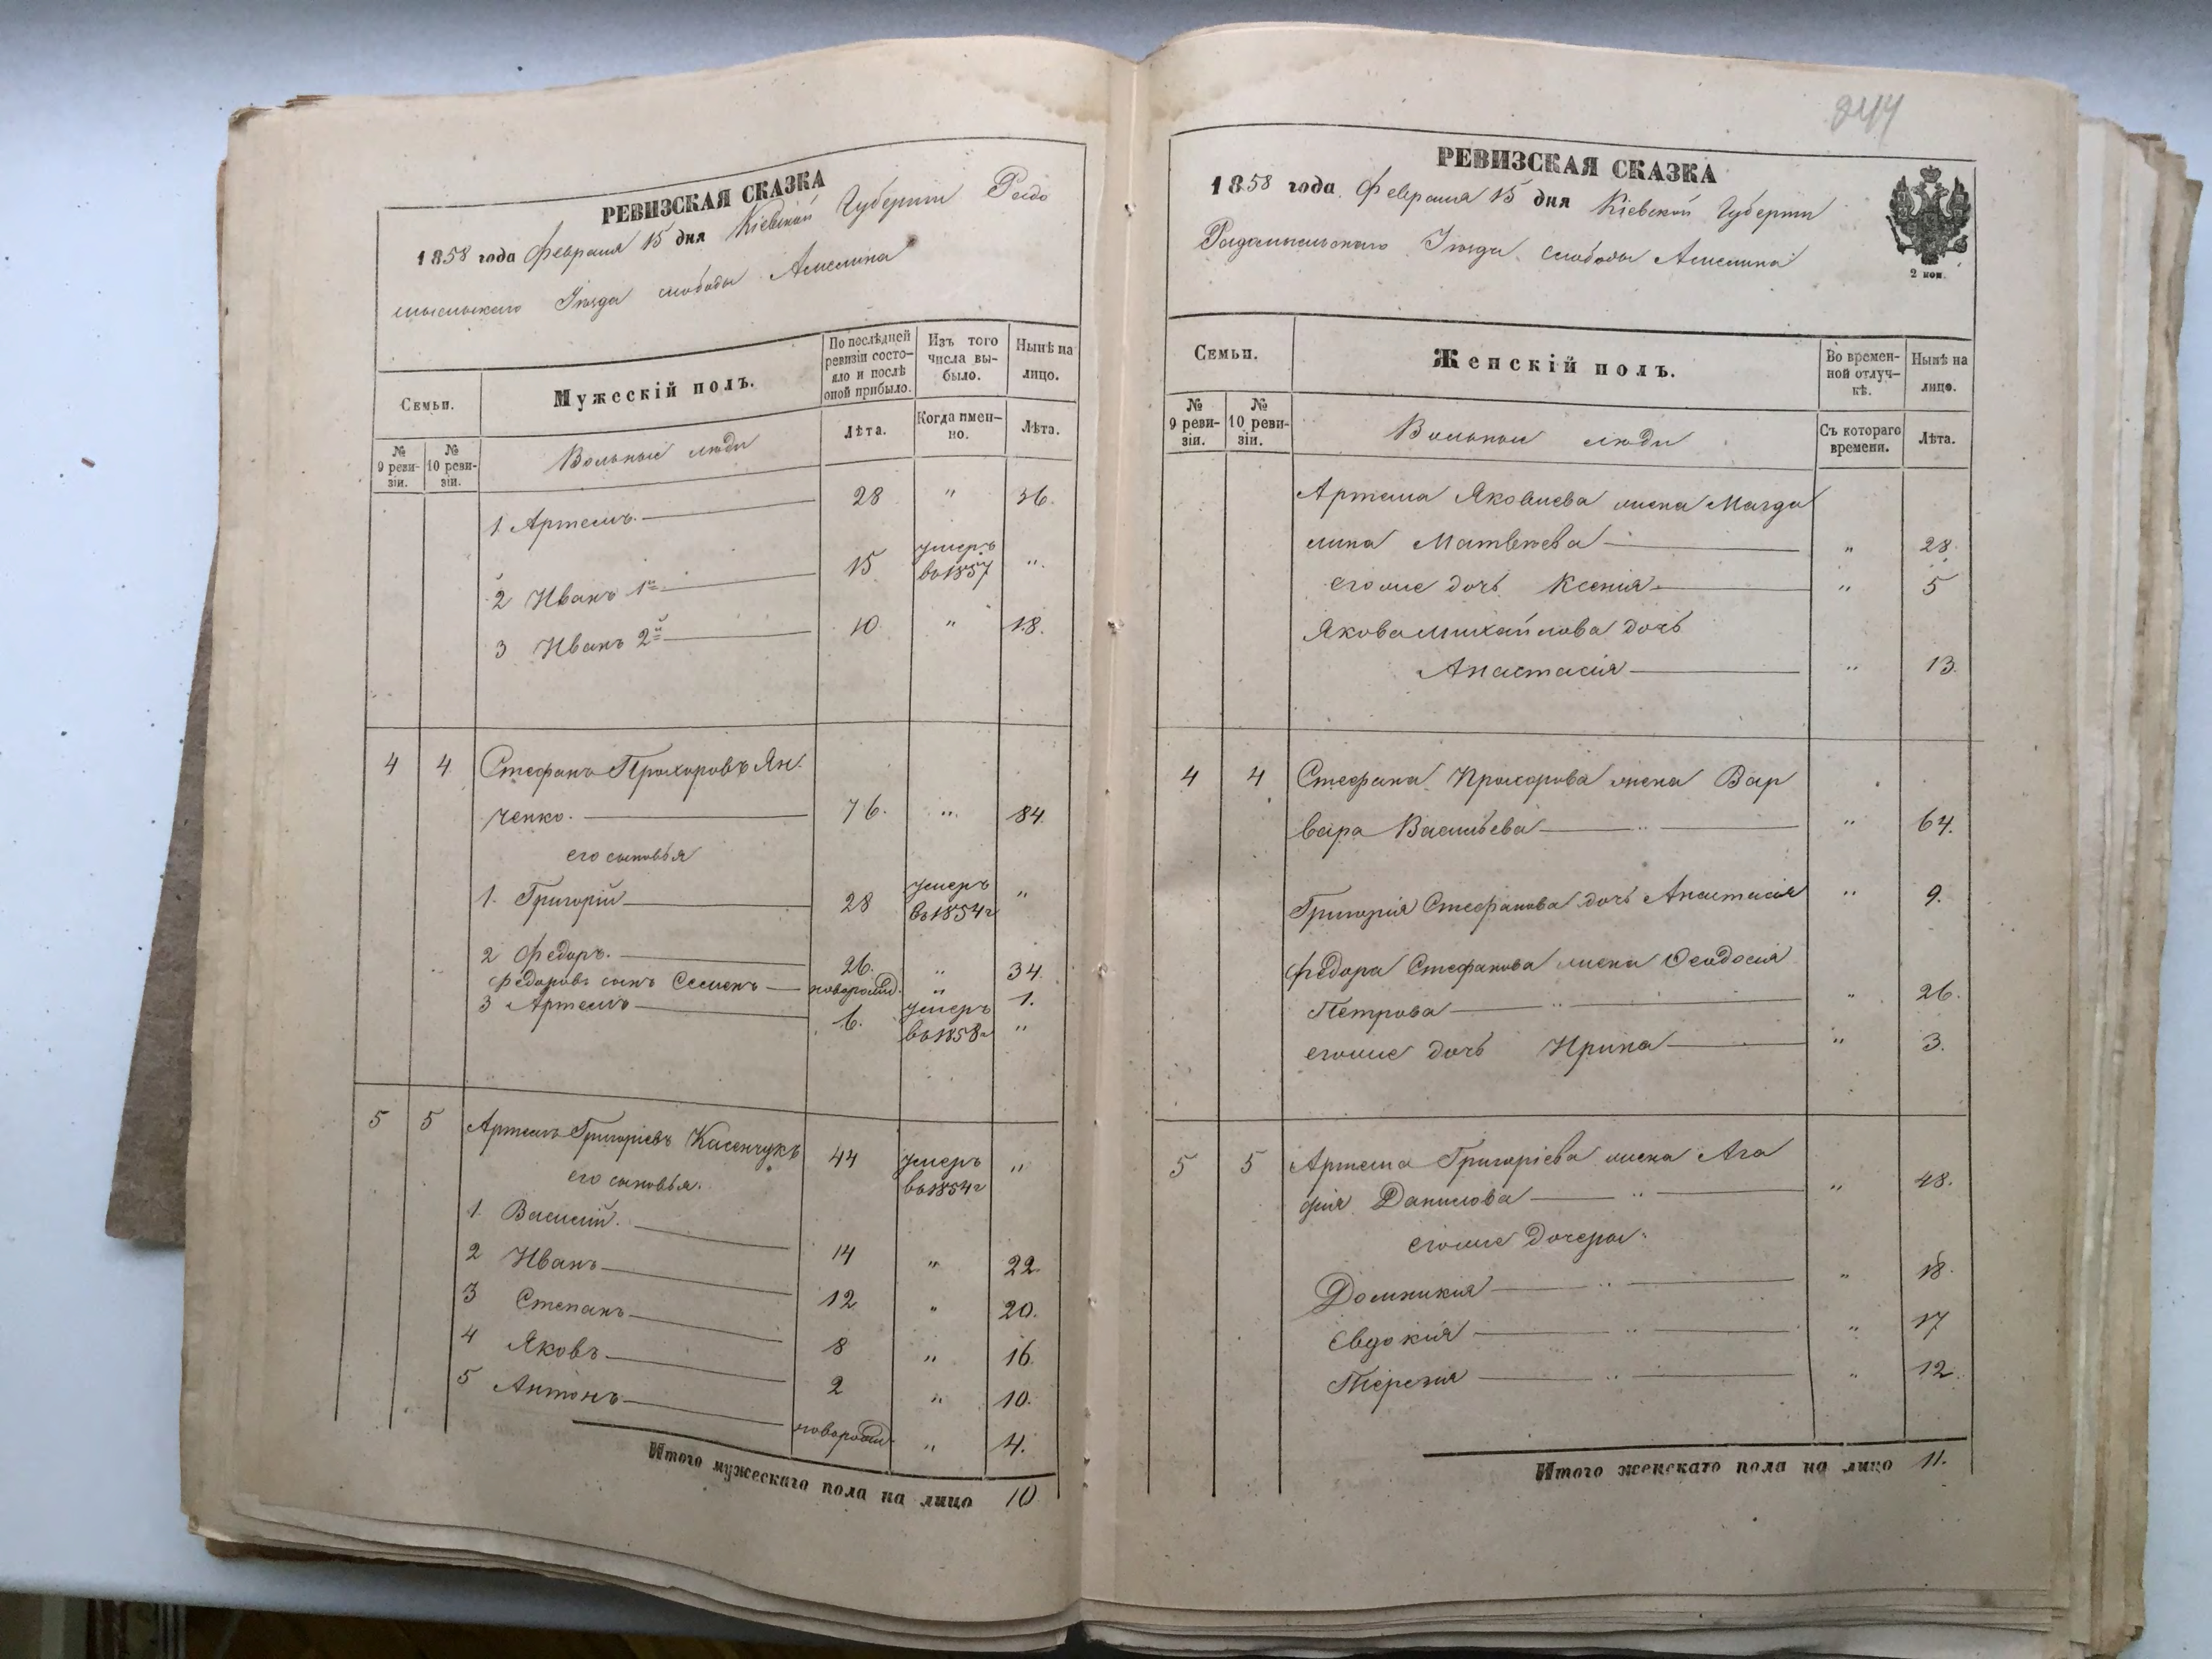 РЕВИЗСКАЯ СКАЗКА
1858 года Февраля 15 дня Кіевской Губерніи Радо
мысльскаго Уѣзда слободы Амелина
Семьи.
Мужескій полъ.
По послѣдней ревизіи состояло и послѣ оной прибыло.
Изъ того числа выбыло.
Нынѣ на лицо.
№ 9 ревизіи.
№ 10 ревизіи.
Вольные люди
Лѣта.
Когда именно.
Лѣта.
1 Артемъ 28 " 36.
2 Иванъ 1й 15 умеръ во 1857 "
3 Иванъ 2й 10 " 18.
4 4 Стефанъ Прохоровъ Ян
ченко. 76. " 84
его сыновья
1. Григорій 28 умеръ въ 1854 г "
2 Федоръ. 26. " 34
Федоровъ сынъ Семенъ новорожд. " 1.
3 Артемъ 6. умеръ во 1858 г "
5 5 Артемъ Григоріевъ Касенчукъ 44 умеръ во 1854 г "
его сыновья.
1. Василій. 14 " 22.
2 Иванъ 12 " 20.
3 Степанъ 8 " 16
4 Яковъ 2 " 10.
5 Антонъ новорожд " 4.
Итого мужескаго пола на лицо 10
244
РЕВИЗСКАЯ СКАЗКА
1858 года Февраля 15 дня Кіевской Губерніи
Радомысльскаго Уѣзда слободы Амелина
2 коп.
Семьи.
Женскій полъ.
Во временной отлучкѣ.
Нынѣ на лицо.
№ 9 ревизіи.
№ 10 ревизіи.
Вольные люди
Съ котораго времени.
Лѣта.
Артема Яковлева жена Магда
лина Матвѣева " 28.
его же дочь Ксенія " 5
Якова Михайлова дочь
Анастасія " 13.
4 4 Стефана Прохорова жена Вар
вара Васильева " 64.
Григорія Стефанова дочь Анастасія " 9.
Федора Стефанова жена Феодосія
Петрова " 26.
его же дочь Ирина " 3.
5 5 Артема Григоріева жена Ага
фія Данилова " 48.
его же дочери:
Домникія " 18.
Евдокія " 17
Терезія " 12.
Итого женскаго пола на лицо 11.